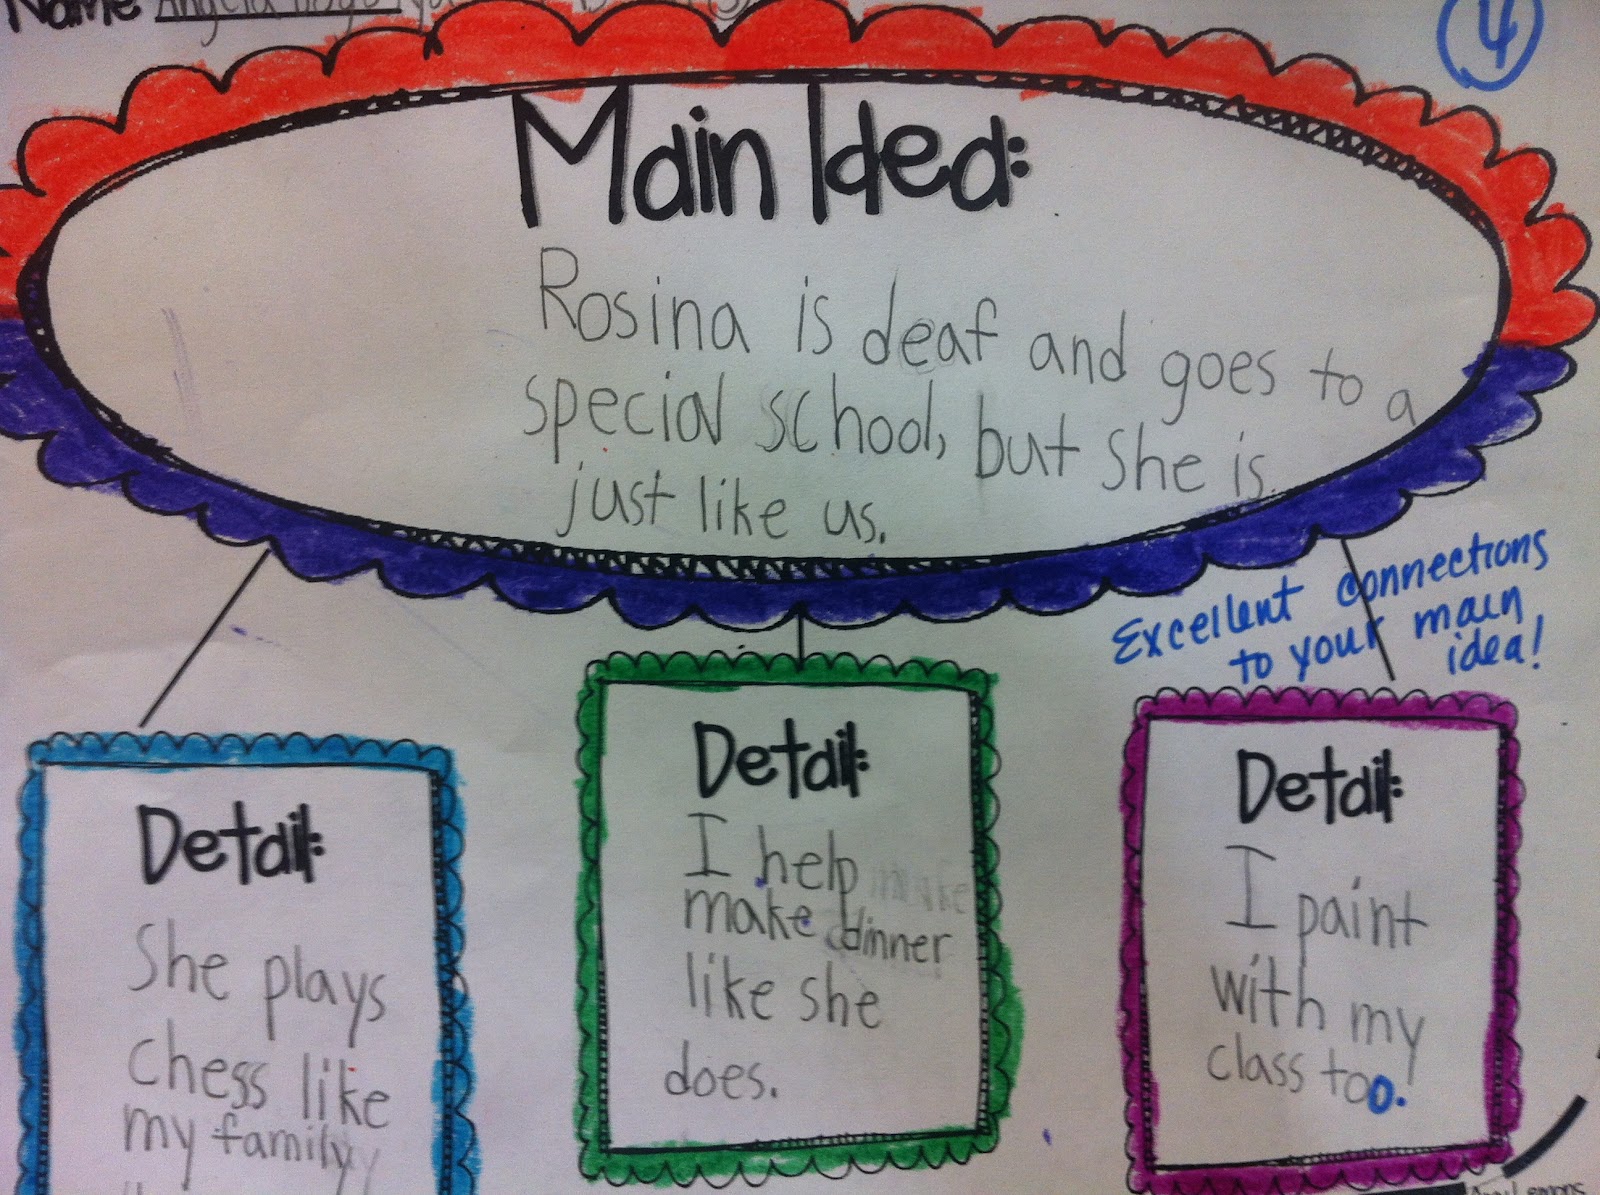 Name Angela
4
Main Idea:
Rosina is deaf and goes to a
special school, but she is
just like us.
Excellent connections
to your main
idea!
Detail:
She plays
chess like
my family
Detail:
I help
make dinner
like she
does.
Detail:
I paint
with my
class too.!